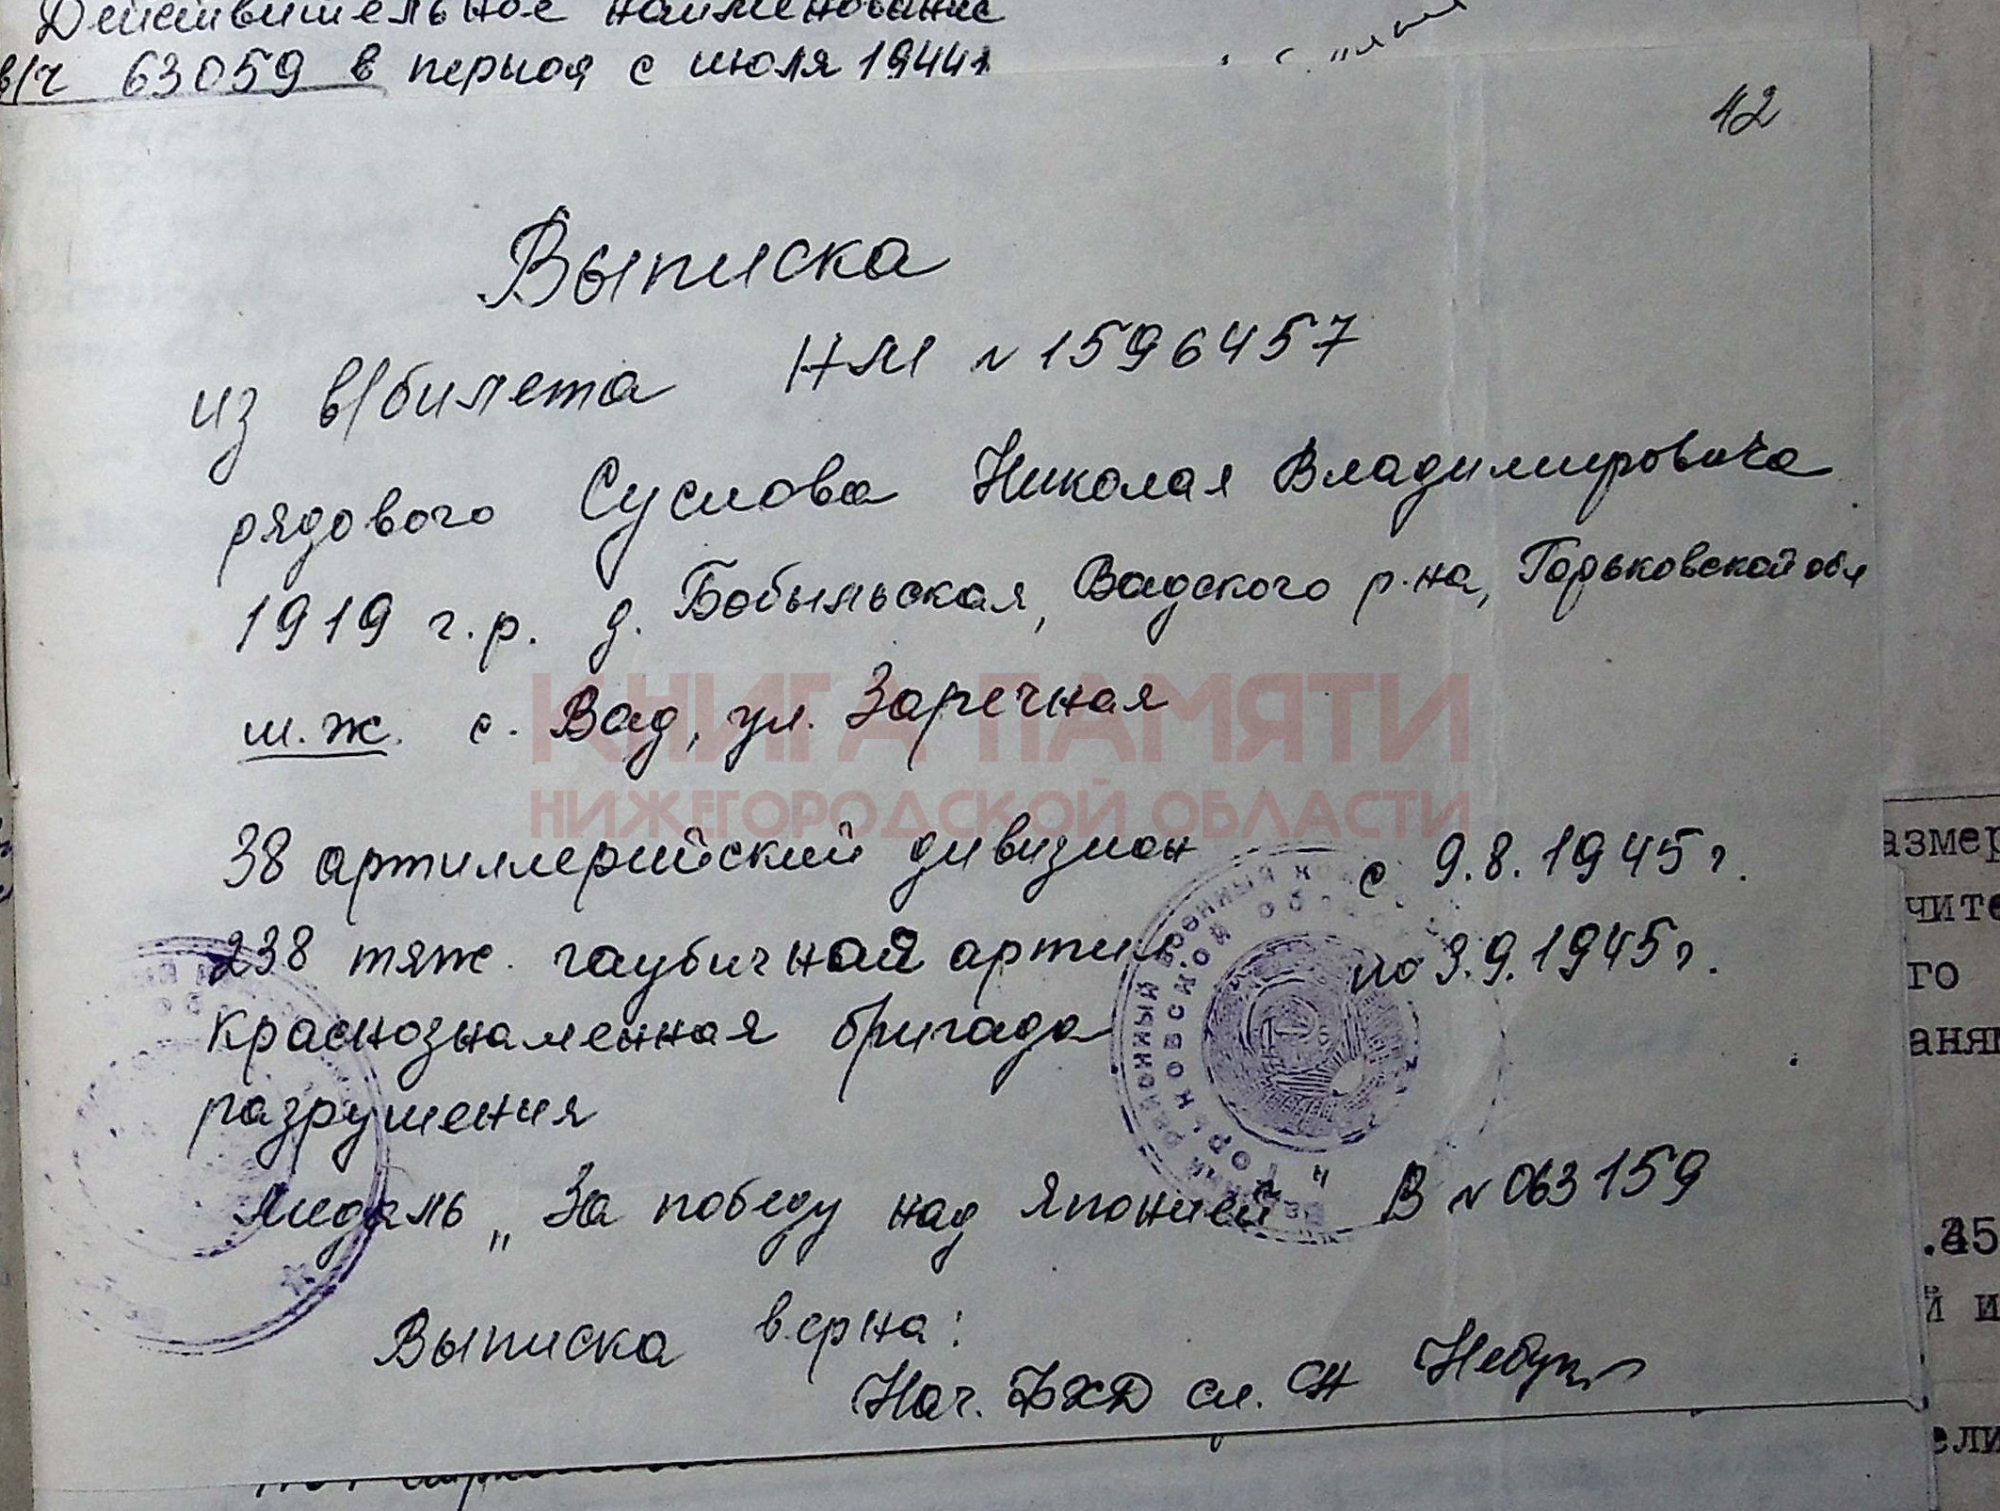 Действительное наименование
в/ч 63059 в период с июля 1944г
42
Выписка
из в/билета НМ № 1596457
рядового Суслова Николая Владимировича
1919 г.р. д. Бобыльская, Вадского р-на, Горьковской обл
м.ж. с. Вад, ул. Заречная
КНИГА ПАМЯТИ
НИЖЕГОРОДСКОЙ ОБЛАСТИ
38 артиллерийский дивизион с 9.8.1945г.
238 тяж. гаубичной артил. по 3.9.1945г.
краснознаменная бригада
разрушения
медаль „За победу над Японией" В № 063159
Выписка верна:
Нач.
азмер
чите
го
аням
й и
ели